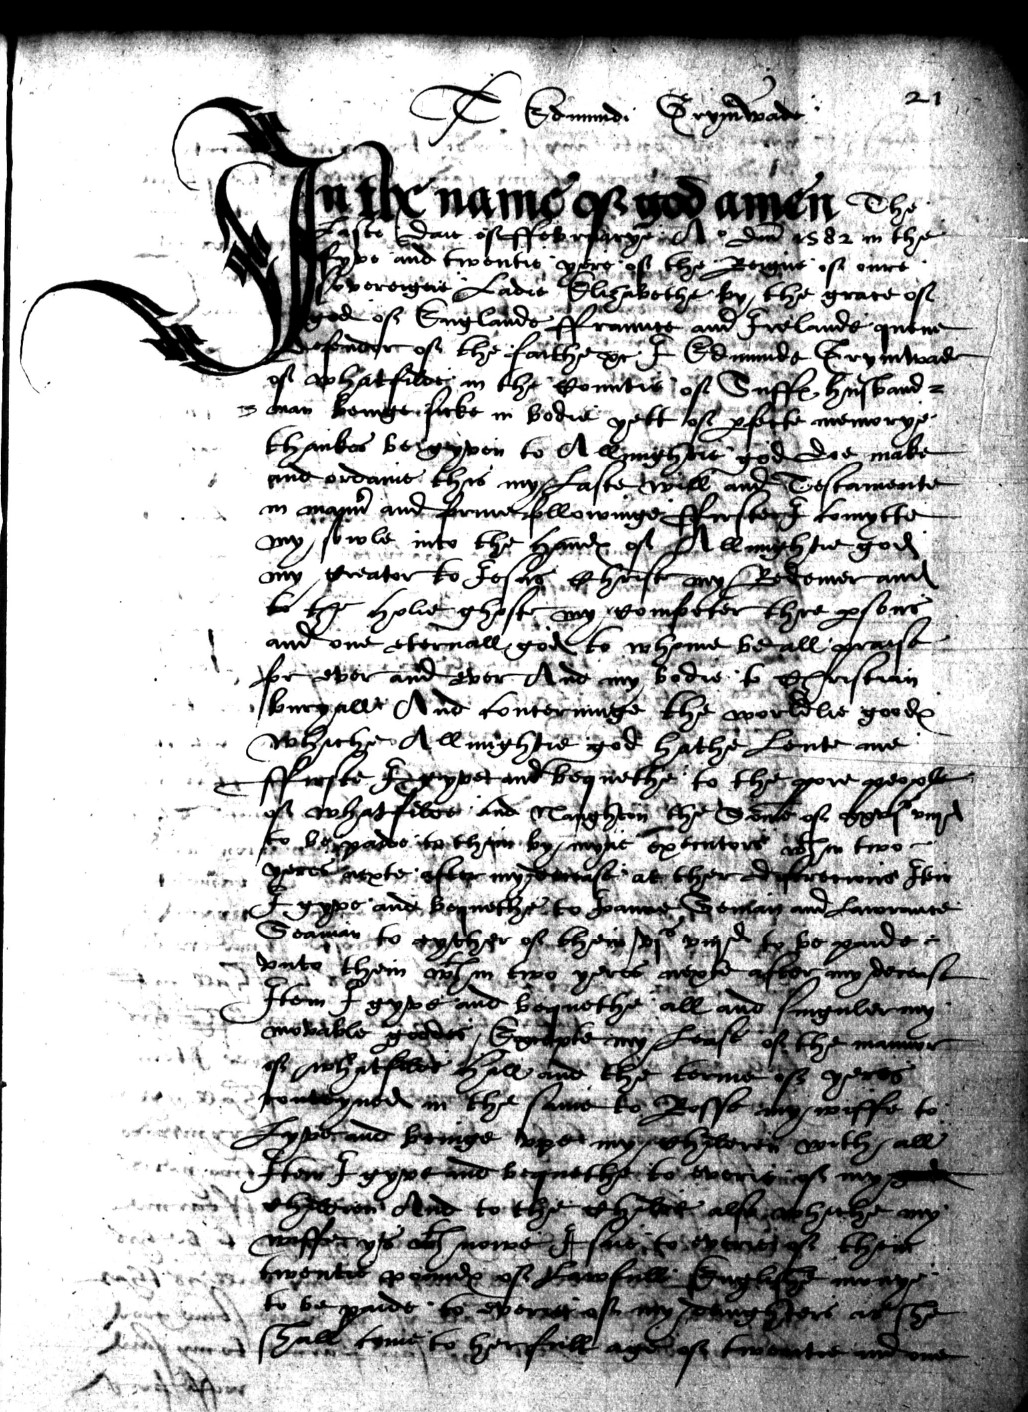 21
T Edmundi Grymwade
In the name of god amen The
Laste daie of ffebruarye Ao dni 1582 in the
fyve and twentie yere of the Reigne of oure
Sovereigne Ladie Elizabethe by the grace of
god of Englande ffraunce and Irelande quene
defender of the faithe &c I Edmunde Grymwade
of Whatfilde in the Countie of Suff husband=
=man beinge sicke in bodie yett of pfecte memorye
thankes be gyven to Allmightie god doe make
and ordaine this my Laste will and Testamente
in mannr and forme followinge ffirste I comytte
my sowle into the hands of Allmightie god
my Creator to Jesus Christ my Redemer and
to the holie ghoste my comforter thre psons
and one eternall god to whome be all praise
for ever and ever And my bodie to Christian
buryall And concerninge the worldlie goods
whiche Allmightie god hathe Lente me
ffirste I gyve and bequethe to the pore people
of Whatfilde and Naughton the Some of viijd
to be paide to them by myne executors wthin two
yeres nexte after my decease at ther discretions Itm
I gyve and bequethe to Seman and Lawrance
Seaman to eyther of them vjs viijd to be paide
unto them wthin two yeres nexte after my deceas
Item I gyve and bequethe all and singuler my
movable goodes Excepte my Lease of the mannor
of Whatfilde hall and the terme of yeres
conteyned in the same to Rosse my wiffe to
Lyve and bringe uppe my children with all
Item I gyve and bequethe to everie of my
children And to the childe also whiche my
wiffe ys wth nowe to everie of them
twentie pounds of Lawfull Englishe monye
to be paide to everie of my Daughters as she
shall come to her full age of twentie and one